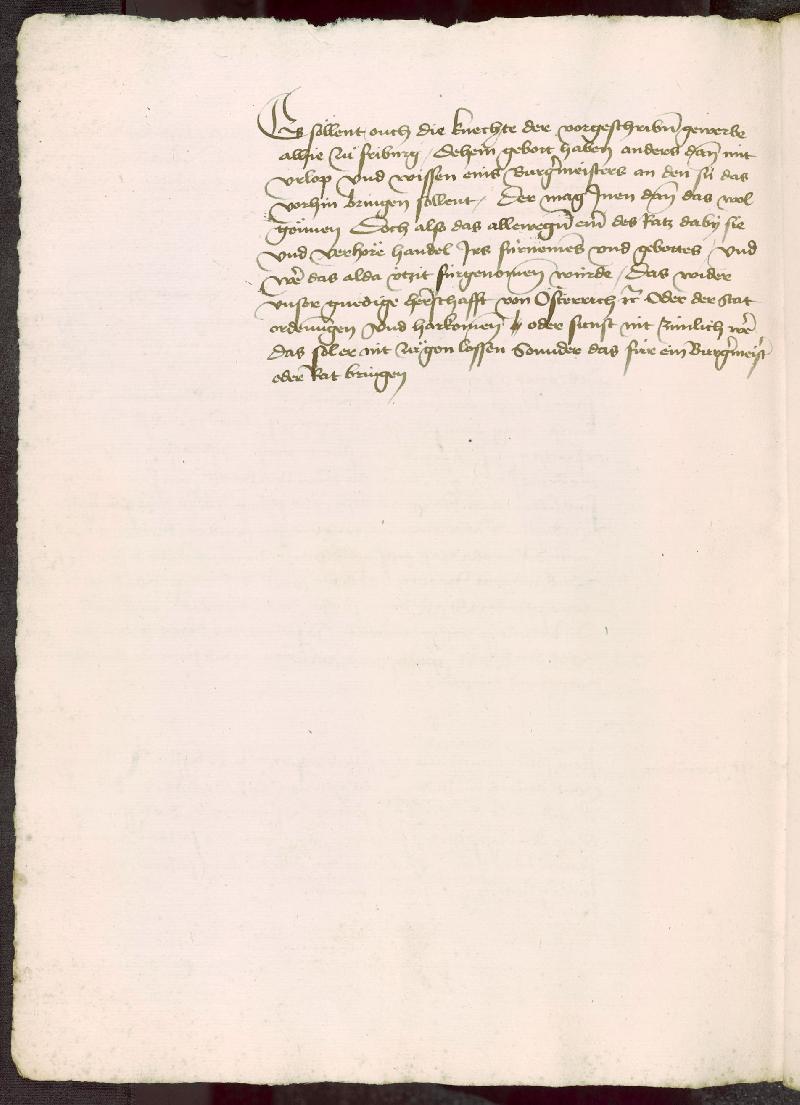 Es söllent ouch die knechte der vorgeschribn̄ gewerbe
alhie zü friburg / dehein gebott haben anders dan̄ mit
vrlop vnd wissen eins Burgermeisters an den si das
vorhin bringen söllent / Der mag Inen dan̄ das wol
gönnen Doch alß das allewegen̄ ein̄ des Ratz daby sie
vnd verhöre handel Irs fürnemēs vnd gebottes / vnd
wer das alda vtzit fürgenomen würde / das wider
vnser gnedige herschafft von Österreich ꝛc Oder der Stat
ordenungen vnd harkomen oder sunst nit zimlich wer
das sol er nit zügon lossen Sonnder das für ein Burgermeist
oder Rat bringen